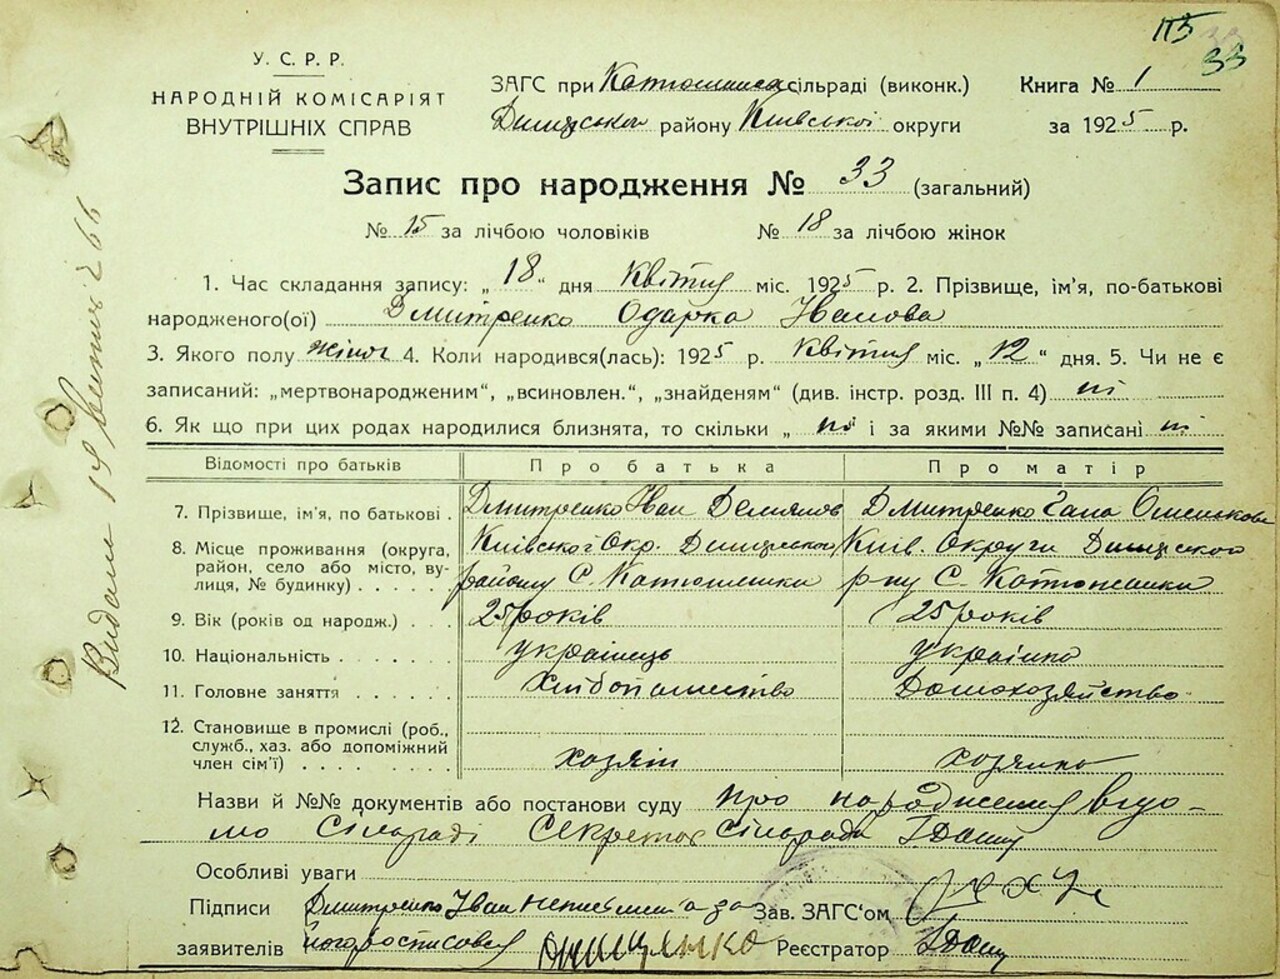 115
33
У. С. Р. Р.
НАРОДНІЙ КОМІСАРІЯТ
ВНУТРІШНІХ СПРАВ
ЗАГС при сільраді (виконк.)
Димерського району Київської округи
Книга № 1
за 1925 р.
Запис про народження № 33 (загальний)
№ 15 за лічбою чоловіків № 18 за лічбою жінок
1. Час складання запису: „18“ дня Квітня міс. 1925 р. 2. Прізвище, ім'я, по-батькові
народженого(ої) Дмитренко Одарка Іванова
3. Якого полу жіноч 4. Коли народився(лась): 1925 р. Квітня міс. „12“ дня. 5. Чи не є
записаний: „мертвонародженим“, „всиновлен.“, „знайденям“ (див. інстр. розд. III п. 4) ні
6. Як що при цих родах народилися близнята, то скільки „ ні і за якими №№ записані ні
Відомості про батьків Про батька Про матір
7. Прізвище, ім'я, по батькові . Дмитренко Іван Демянов Дмитренко Гана
8. Місце проживання (округа, Київської Окр. Димерського Київ. Округи Димерського
район, село або місто, ву-
лиця, № будинку) . . . . . району С. Катюжанки р-ну С. Катюжанки
9. Вік (років од народж.) . . . 25 років 25 років
10. Національність . . . . . . . українець українка
11. Головне заняття . . . . . . Хлібопашество Домохозяйство
12. Становище в промислі (роб.,
служб., хаз. або допоміжний
член сім'ї) . . . . . . . . . хозяїн хозяйка
Назви й №№ документів або постанови суду про народження відо-
мо Сільраді Секретар Сільради
Особливі уваги
Підписи Дмитренко Іван неписьмен а за Зав. ЗАГС'ом
заявителів його росписовся Реєстратор